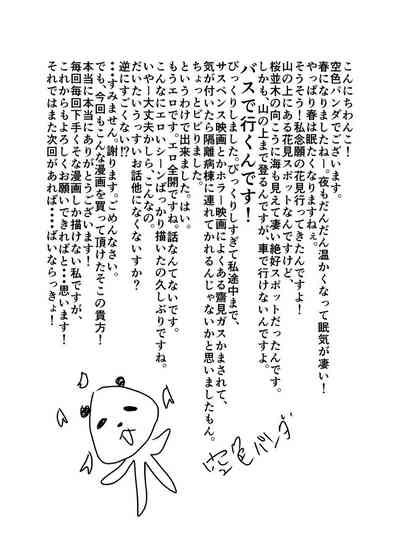 こんにちわんこ！
空色パンダでございます。
春になりましたねー。夜もだんだん温かくなって眠気が凄い！
やっぱり春は眠たくなりますねぇ。
そうそう！私念願の花見行ってきたんですよ！
山の上にある花見スポットなんですけど、
桜並木の向こうに海も見えて凄い絶好スポットだったんです。
しかも、山の上まで登るんですが、車で行けないんですよ。
バスで行くんです！
びっくりしました。びっくりしすぎて私途中まで、
サスペンス映画とかホラー映画によくある齋見ガスかまされて、
気が付いたら隔離病棟に連れてかれるんじゃないかと思いましたもん。
ちょっとビビりました。
というわけで出来ました。はい。
もうエロです。エロ全開ですね。話なんてないです。
こんなにエロいシーンばっかり描いたの久しぶりですね。
いやー大丈夫かしら、こんなの。
だいたいうっすいお話他になくないすか？
逆にすごくない!?
・・すみません。謝ります。ごめんなさい。
でも、今回もこんな漫画を買って頂けたそこの貴方！
本当に本当にありがとうございます！
毎回毎回下手くそな漫画しか描けない私ですが、
これからもよろしくお願いできればと・・思います！
それではまた次回があれば・・・・ばいならっきょ！
空色パンダ